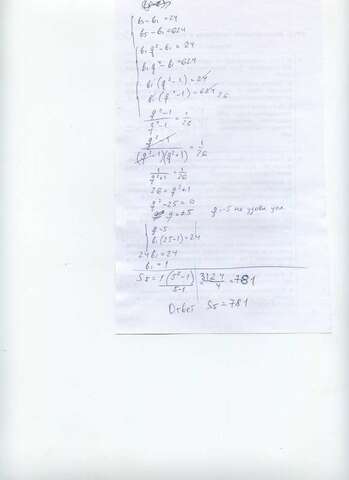 b₃-b₁=24
b₅-b₁=624
b₁q²-b₁=24
b₁q⁴-b₁=624
b₁(q²-1)=24
b₁(q⁴-1)=624 26
q²-1/q⁴-1=1/26
q²-1/(q²-1)(q²+1)=1/26
1/q²+1=1/26
26=q²+1
q²-25=0
q=±5 q=-5 не удовл усл
q=5
b₁(25-1)=24
24b₁=24
b₁=1
S₅=1(5⁵-1)/5-1 3124/4=781
Ответ S₅=781